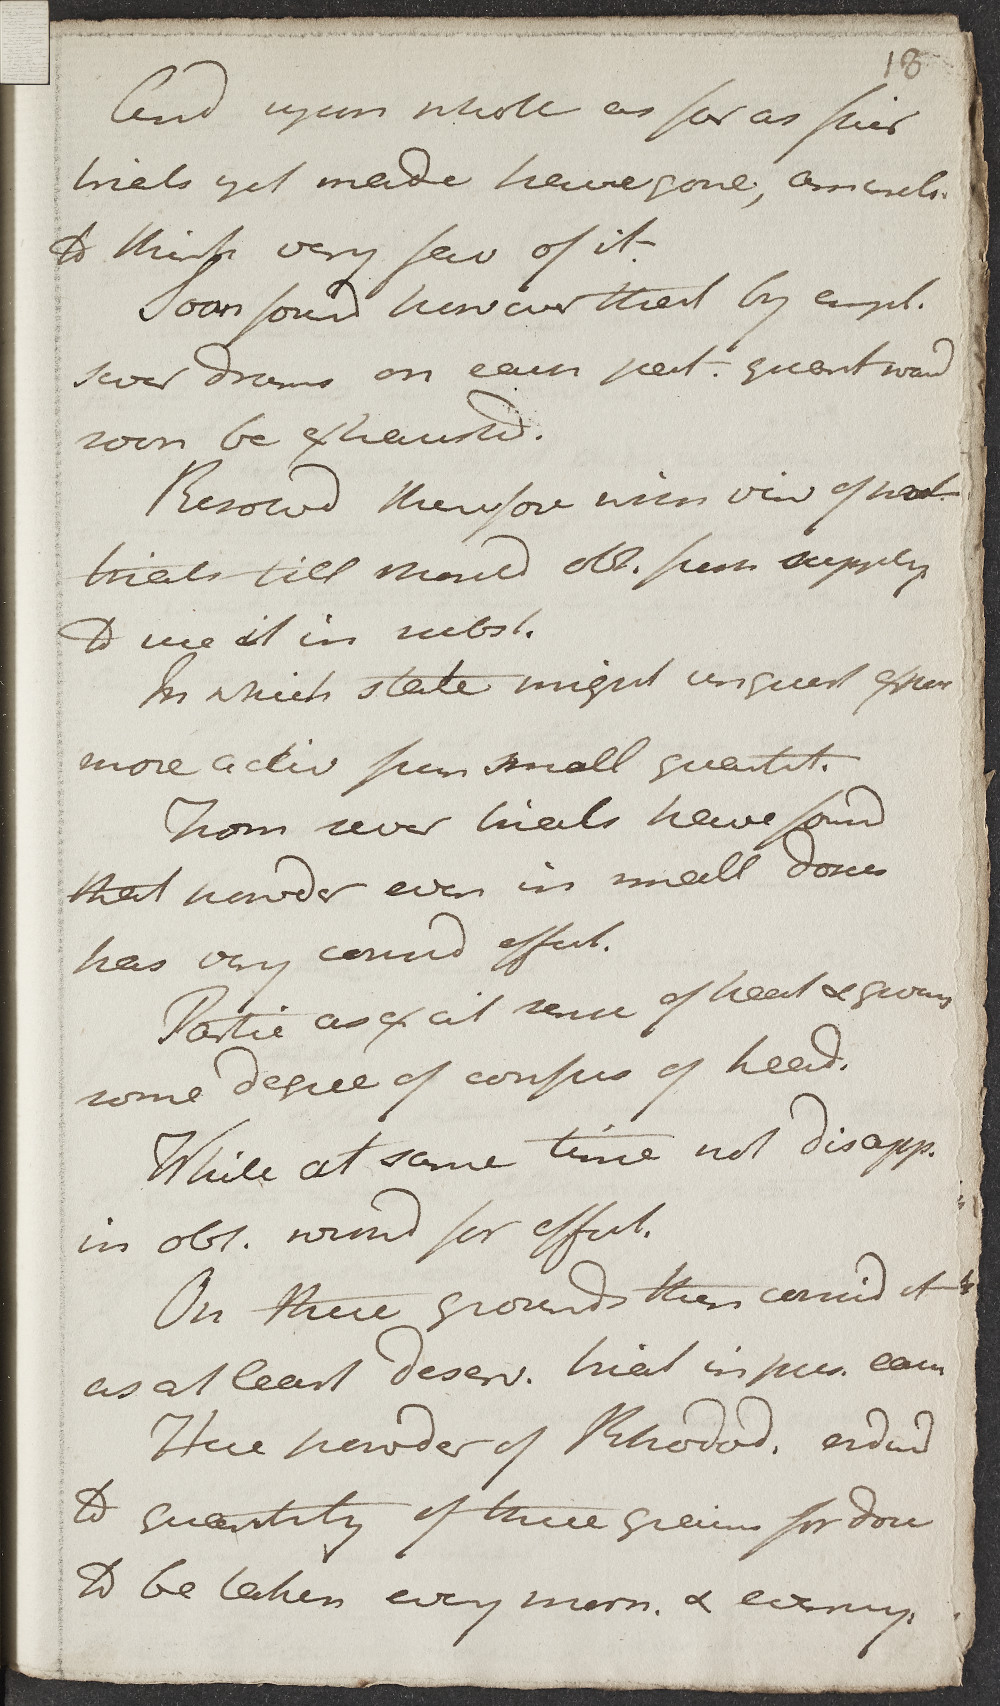 18
And upon whole as far as furr
trials yet made have gone, am incln.
to think very fav of it.
Soon found however that by empl.
sever drams on each pat. quant would
soon be exhausted.
Resolvd therefore with view of
trials till should obt. furr supply
to use it in subst.
In which state might at least expect
more activ from small quantit.
From sever trials have found
that powder even in small doses
has very consid effect.
Partic as excit sense of heat & giving
some degree of confus of head.
While at same time not disapp.
in obt. wound for effect.
On these grounds then consid it
as at least deserv. trial in pres. case
Here powder of Rhodod. ordered
to quantity of three grains for dose
to be taken every morn. & evening.